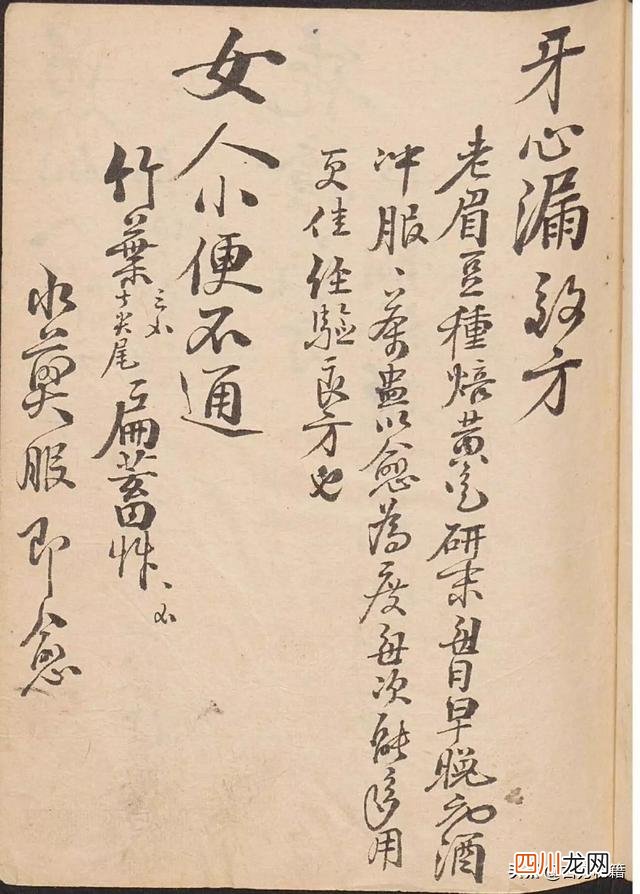 牙心漏效方
老眉豆種焙黃色研末每日早晚和酒
冲服一茶盅以愈為度每次能多用
更佳經驗良方也
女人小便不通
竹葉十尖尾 扁蓄
水煎服即愈
四川龙网